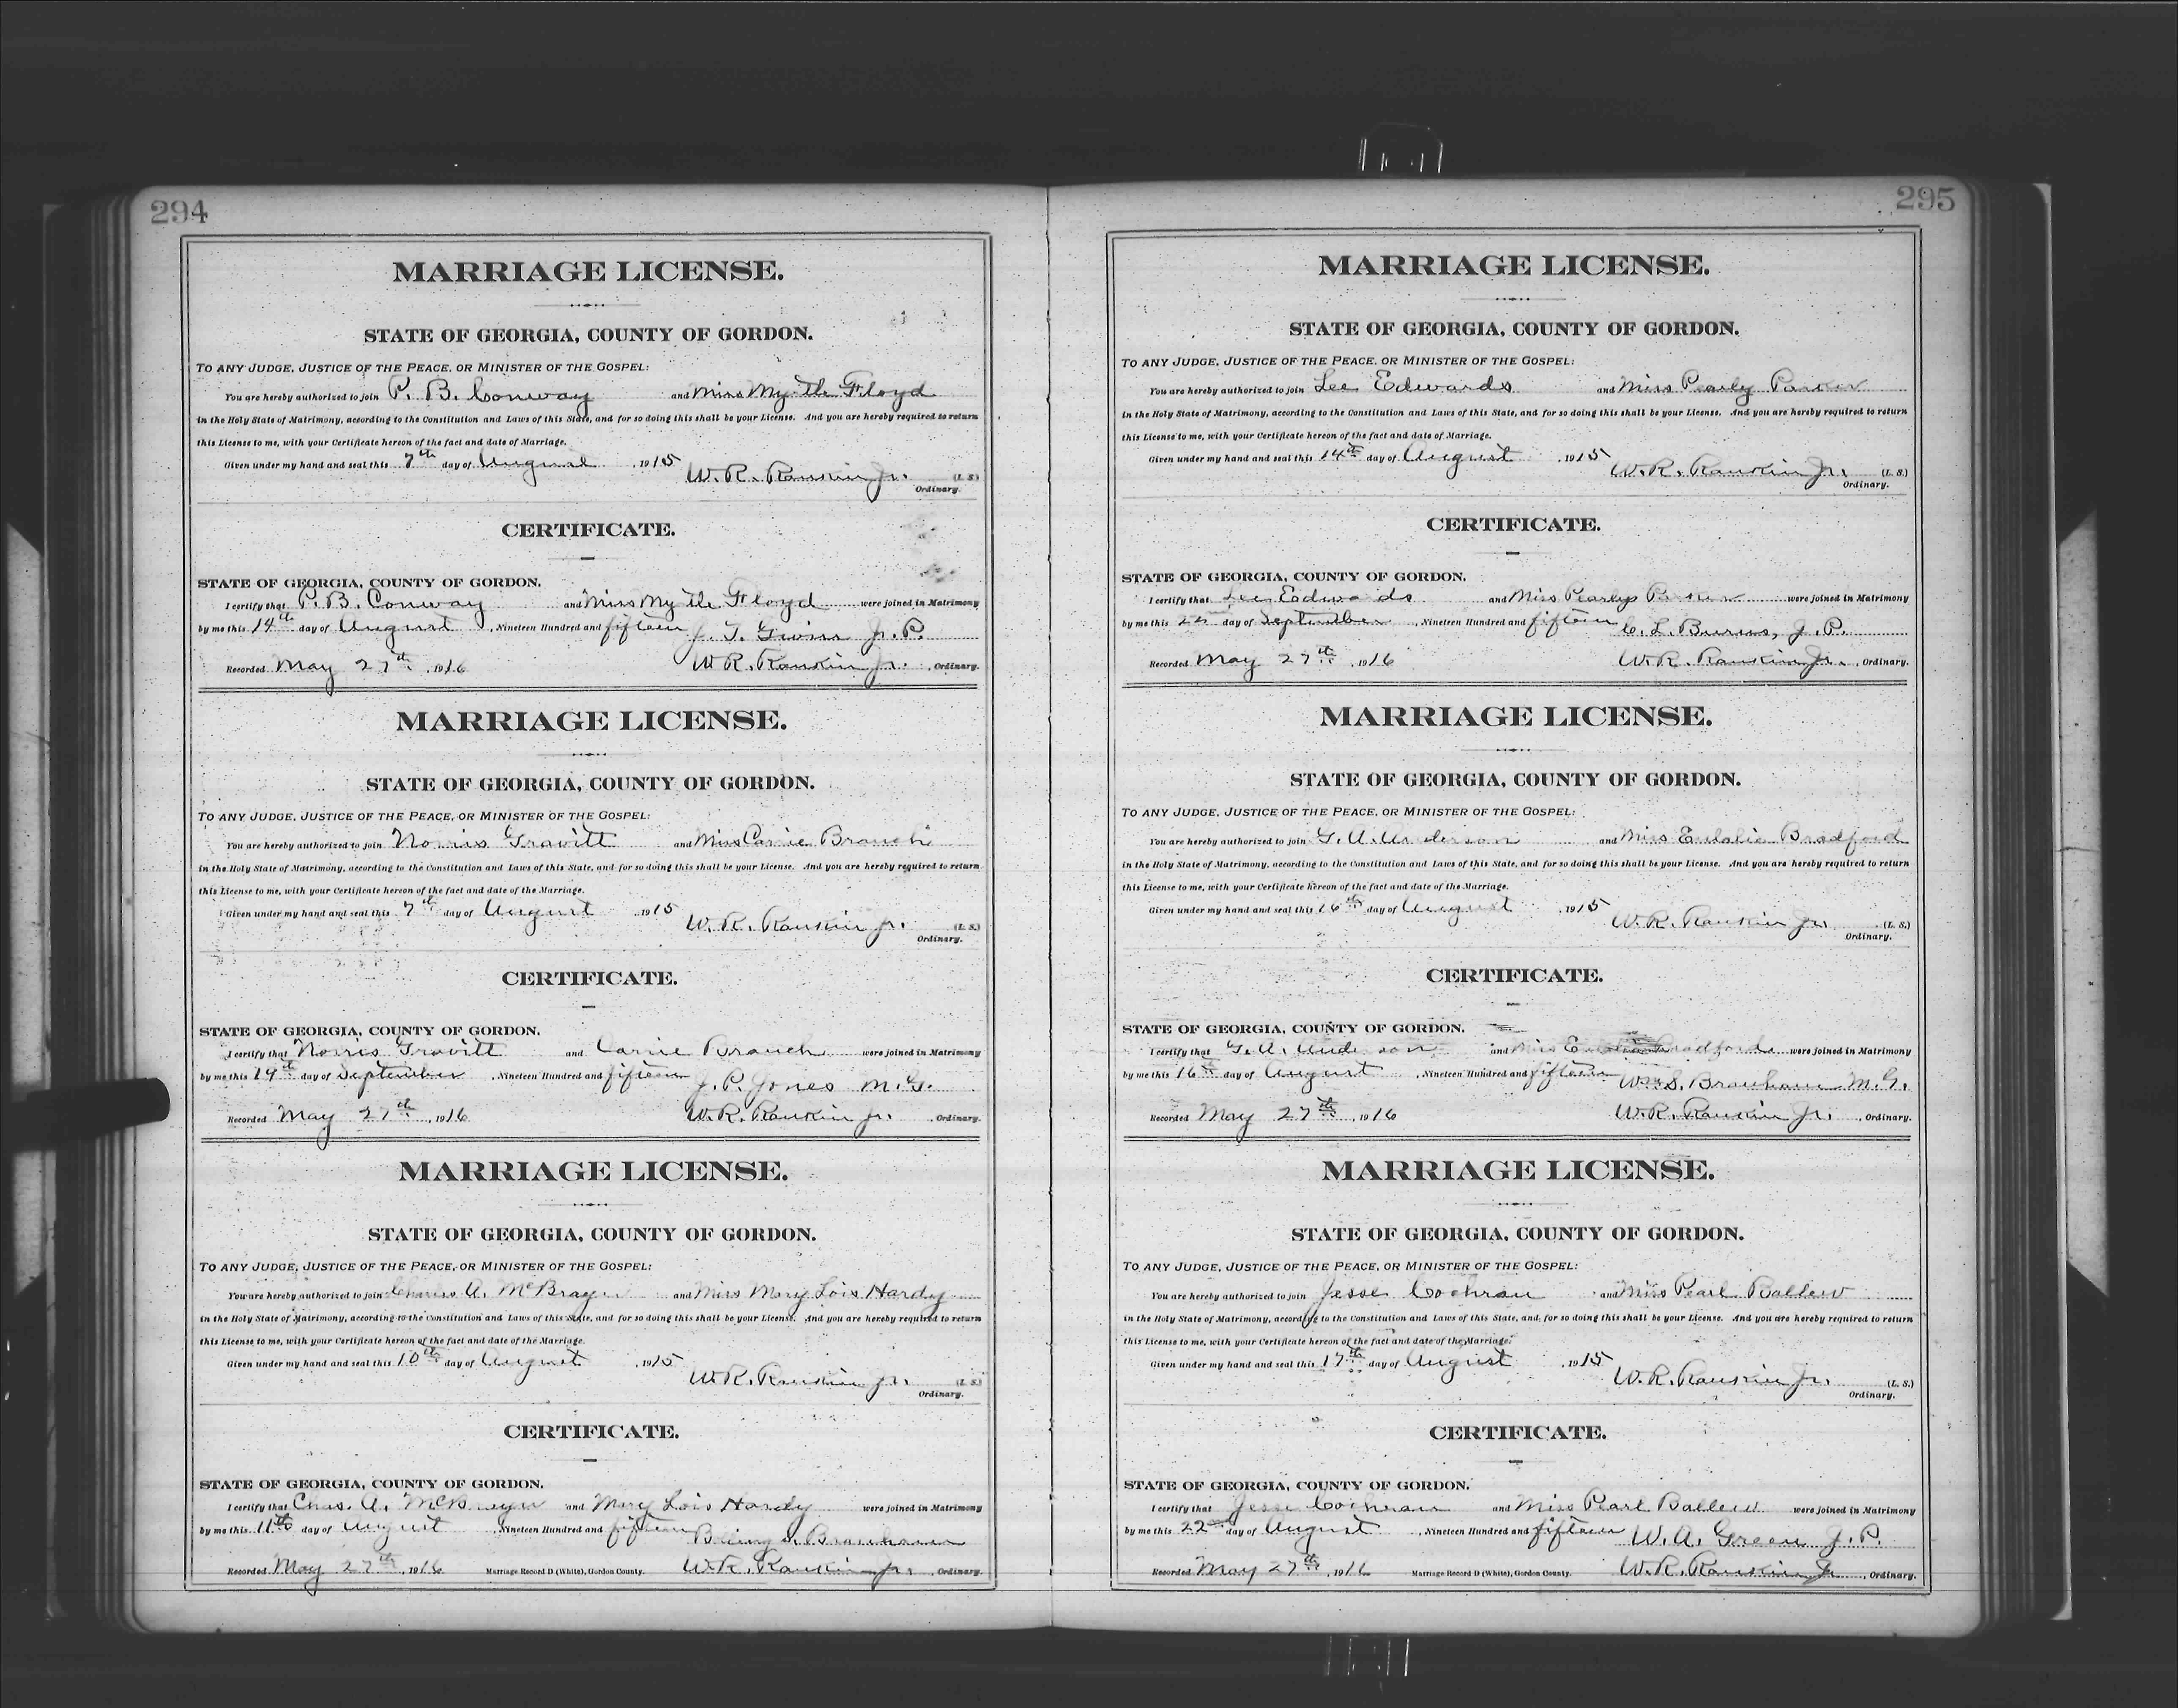 294
MARRIAGE LICENSE.
STATE OF GEORGIA, COUNTY OF GORDON.
TO ANY JUDGE, JUSTICE OF THE PEACE, OR MINISTER OF THE GOSPEL:
You are hereby authorized to join P. B. Conway and Miss Myrtle Floyd
in the Holy State of Matrimony, according to the Constitution and Laws of this State, and for so doing this shall be your License. And you are hereby required to return
this License to me, with your Certificate hereon of the fact and date of Marriage.
Given under my hand and seal this 7th day of August, 1915
W. R. Rankin Jr. (L. S.)
Ordinary.
CERTIFICATE.
STATE OF GEORGIA, COUNTY OF GORDON.
I certify that P. B. Conway and Miss Myrtle Floyd were joined in Matrimony
by me this 14th day of August, Nineteen Hundred and fifteen J. P.
Recorded May 27th, 1916 W. R. Rankin Jr., Ordinary.
MARRIAGE LICENSE.
STATE OF GEORGIA, COUNTY OF GORDON.
TO ANY JUDGE, JUSTICE OF THE PEACE, OR MINISTER OF THE GOSPEL:
You are hereby authorized to join Norris Gravitt and Miss Carrie Branch
in the Holy State of Matrimony, according to the Constitution and Laws of this State, and for so doing this shall be your License. And you are hereby required to return
this License to me, with your Certificate hereon of the fact and date of the Marriage.
Given under my hand and seal this 7th day of August, 1915
W. R. Rankin Jr. (L. S.)
Ordinary.
CERTIFICATE.
STATE OF GEORGIA, COUNTY OF GORDON.
I certify that Norris Gravitt and Carrie Branch were joined in Matrimony
by me this 14th day of September, Nineteen Hundred and fifteen J. P. Jones M. G.
Recorded May 27th, 1916 W. R. Rankin Jr., Ordinary.
MARRIAGE LICENSE.
STATE OF GEORGIA, COUNTY OF GORDON.
TO ANY JUDGE, JUSTICE OF THE PEACE, OR MINISTER OF THE GOSPEL:
You are hereby authorized to join Charles A. McBrayer and Miss Mary Lois Hardy
in the Holy State of Matrimony, according to the Constitution and Laws of this State, and for so doing this shall be your License. And you are hereby required to return
this License to me, with your Certificate hereon of the fact and date of the Marriage.
Given under my hand and seal this 10th day of August, 1915
W. R. Rankin Jr. (L. S.)
Ordinary.
CERTIFICATE.
STATE OF GEORGIA, COUNTY OF GORDON.
I certify that Chas. A. McBrayer and Mary Lois Hardy were joined in Matrimony
by me this 11th day of August, Nineteen Hundred and fifteen
Recorded May 27th, 1916 Marriage Record D (White), Gordon County. W. R. Rankin Jr., Ordinary.
295
MARRIAGE LICENSE.
STATE OF GEORGIA, COUNTY OF GORDON.
TO ANY JUDGE, JUSTICE OF THE PEACE, OR MINISTER OF THE GOSPEL:
You are hereby authorized to join Lee Edwards and Miss Pearly Parker
in the Holy State of Matrimony, according to the Constitution and Laws of this State, and for so doing this shall be your License. And you are hereby required to return
this License to me, with your Certificate hereon of the fact and date of Marriage.
Given under my hand and seal this 14th day of August, 1915
W. R. Rankin Jr. (L. S.)
Ordinary.
CERTIFICATE.
STATE OF GEORGIA, COUNTY OF GORDON.
I certify that Lee Edwards and Miss Pearly Parker were joined in Matrimony
by me this day of September, Nineteen Hundred and fifteen C. L. Burns, J. P.
Recorded May 27th, 1916 W. R. Rankin Jr., Ordinary.
MARRIAGE LICENSE.
STATE OF GEORGIA, COUNTY OF GORDON.
TO ANY JUDGE, JUSTICE OF THE PEACE, OR MINISTER OF THE GOSPEL:
You are hereby authorized to join G. A. Anderson and Miss Eulalia Bradford
in the Holy State of Matrimony, according to the Constitution and Laws of this State, and for so doing this shall be your License. And you are hereby required to return
this License to me, with your Certificate hereon of the fact and date of the Marriage.
Given under my hand and seal this 16th day of August, 1915
W. R. Rankin Jr. (L. S.)
Ordinary.
CERTIFICATE.
STATE OF GEORGIA, COUNTY OF GORDON.
I certify that G. A. Anderson and Miss Bradford were joined in Matrimony
by me this 16th day of August, Nineteen Hundred and fifteen Wm. S. Branham M. G.
Recorded May 27th, 1916 W. R. Rankin Jr., Ordinary.
MARRIAGE LICENSE.
STATE OF GEORGIA, COUNTY OF GORDON.
TO ANY JUDGE, JUSTICE OF THE PEACE, OR MINISTER OF THE GOSPEL:
You are hereby authorized to join Jesse Cochran and Miss Pearl Ballew
in the Holy State of Matrimony, according to the Constitution and Laws of this State, and for so doing this shall be your License. And you are hereby required to return
this License to me, with your Certificate hereon of the fact and date of the Marriage.
Given under my hand and seal this 17th day of August, 1915
W. R. Rankin Jr. (L. S.)
Ordinary.
CERTIFICATE.
STATE OF GEORGIA, COUNTY OF GORDON.
I certify that Jesse Cochran and Miss Pearl Ballew were joined in Matrimony
by me this 22nd day of August, Nineteen Hundred and fifteen W. A. Green J. P.
Recorded May 27th, 1916 Marriage Record D (White), Gordon County. W. R. Rankin Jr., Ordinary.